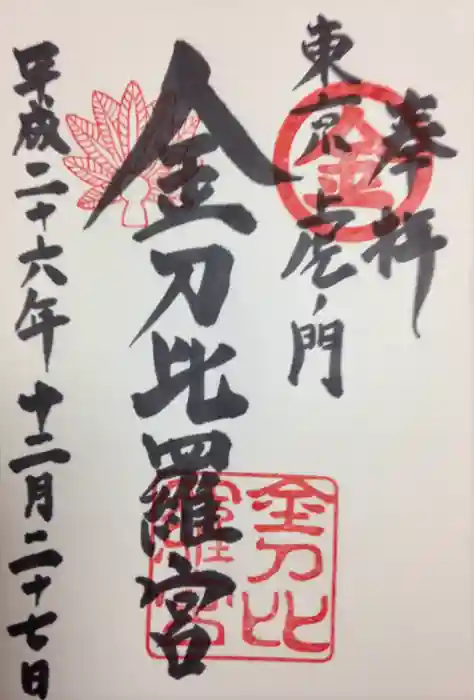 奉拝
東京虎ノ門
金刀比羅宮
平成二十六年十二月二十七日
金
金刀比
羅宮